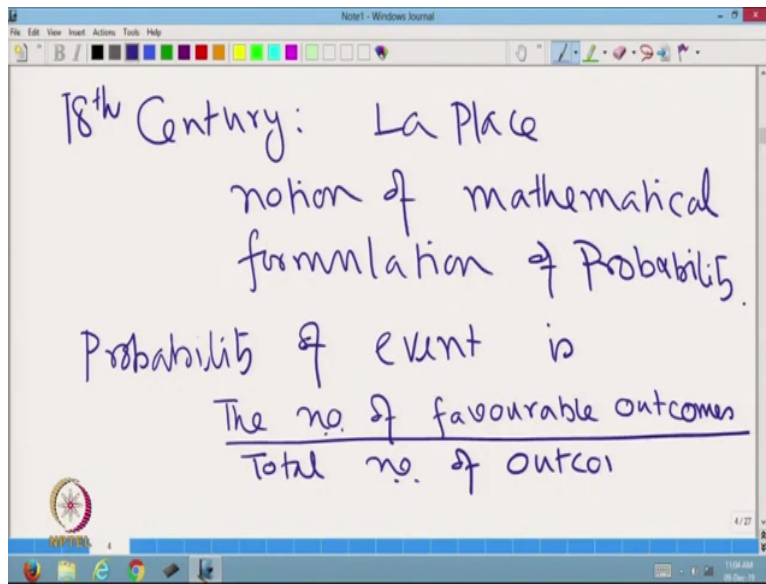 Note1 - Windows Journal
File Edit View Insert Actions Tools Help
B I
18th Century: La Place
notion of mathematical
formulation of Probability.
Probability of event is
The no. of favourable outcomes
Total no. of outcoı
NPTEL
4
4/27
11:04 AM
06-Dec-19